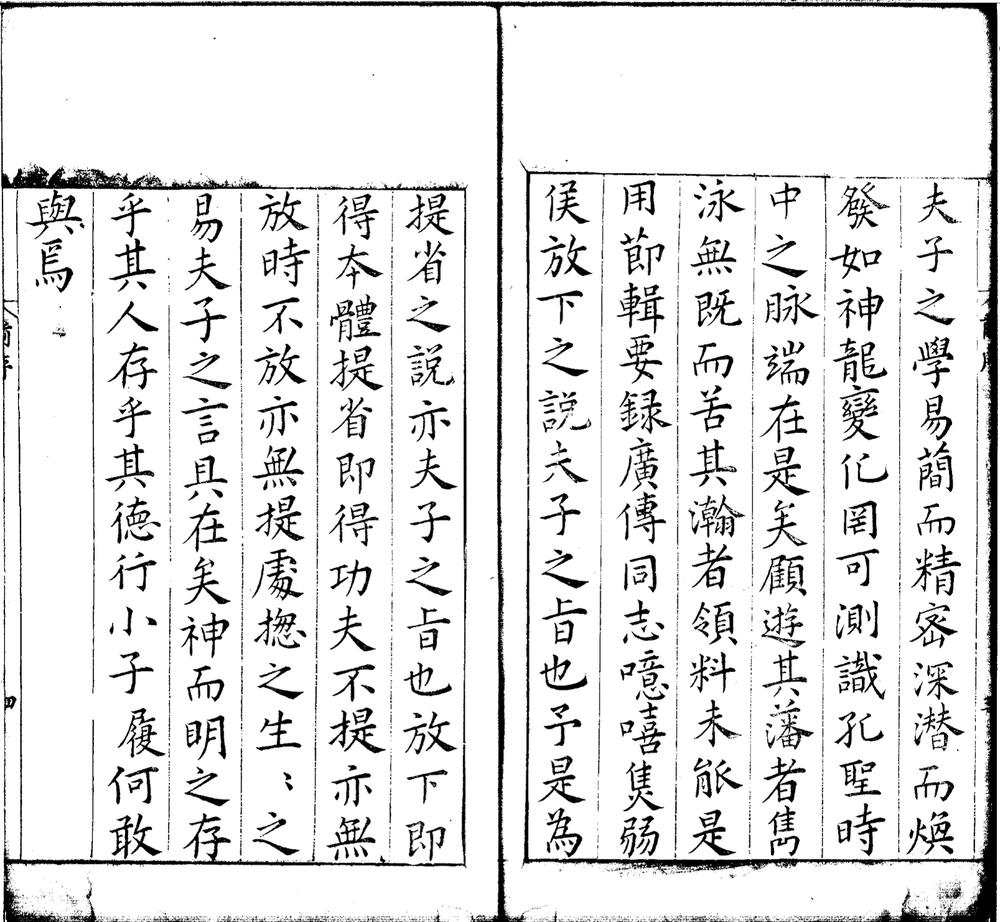 夫子之學易蕳而精密深潜而煥
發如神龍變化罔可測識孔聖時
中之脉端在是矣顧遊其藩者雋
泳無既而苦其瀚者領料未能是
用節輯要録廣傳同志噫嘻雋弱
侯放下之說夫子之㫖也予是為
提省之說亦夫子之㫖也放下即
得本體提省即得功夫不提亦無
放時不放亦無提處揔之生〻之
易夫子之言具在矣神而明之存
乎其人存乎其德行小子履何敢
與焉
四